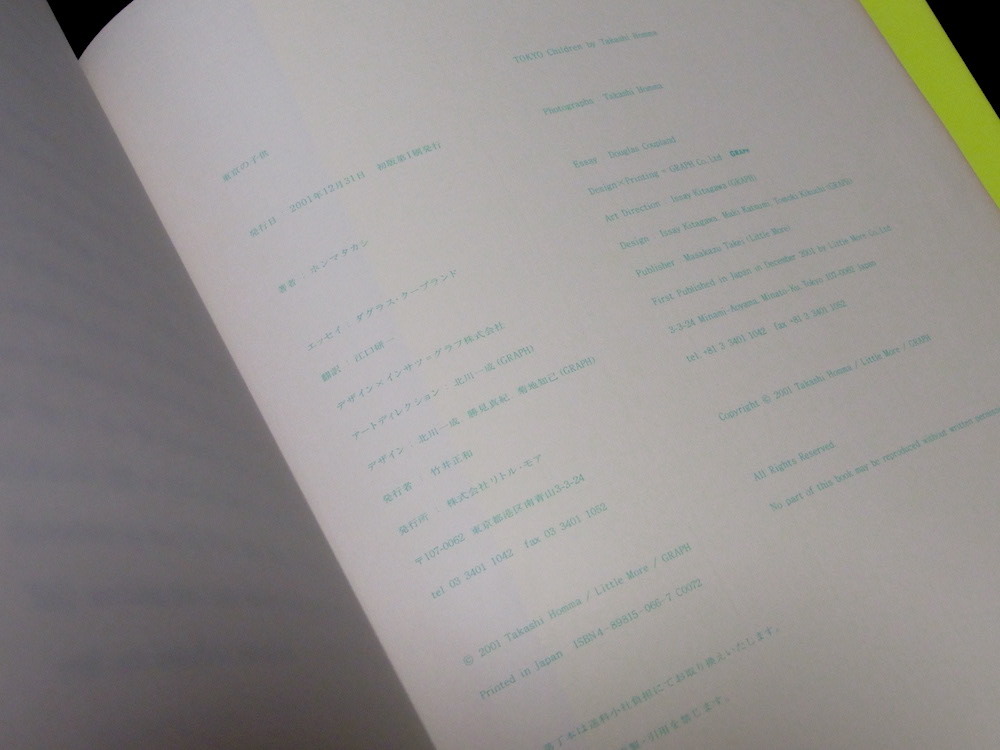 東京の子供
発行日 2001年12月31日 初版第1刷発行
著者 : ホンマタカシ
エッセイ : ダグラス・クープランド
翻訳 : 江口研一
デザイン×インサツ=グラフ株式会社
アートディレクション : 北川一成 (GRAPH)
デザイン : 北川一成 勝見真紀 菊地知己 (GRAPH)
発行者 : 竹井正和
発行所 : 株式会社リトル・モア
〒107-0062 東京都港区南青山3-3-24
tel 03 3401 1042 fax 03 3401 1052
© 2001 Takashi Homma / Little More / GRAPH
Printed in Japan ISBN4-89815-066-7 C0072
落丁本は送料小社負担にてお取り換えいたします。
・引用を禁じます。
TOKYO Children by Takashi Homma
Photographs Takashi Homma
Essay Douglas Coupland
Design×Printing = GRAPH Co.,Ltd
Art Direction Issay Kitagawa (GRAPH)
Design Issay Kitagawa, Maki Katsumi, Tomoki Kikuchi (GRAPH)
Publisher Masakazu Takei (Little More)
First Published in Japan in December 2001 by Little More Co.,Ltd
3-3-24 Minami-Aoyama, Minato-ku Tokyo 107-0062 Japan
tel +81 3 3401 1042 fax +81 3 3401 1052
Copyright © 2001 Takashi Homma / Little More / GRAPH
All Rights Reserved
No part of this book may be reproduced without written